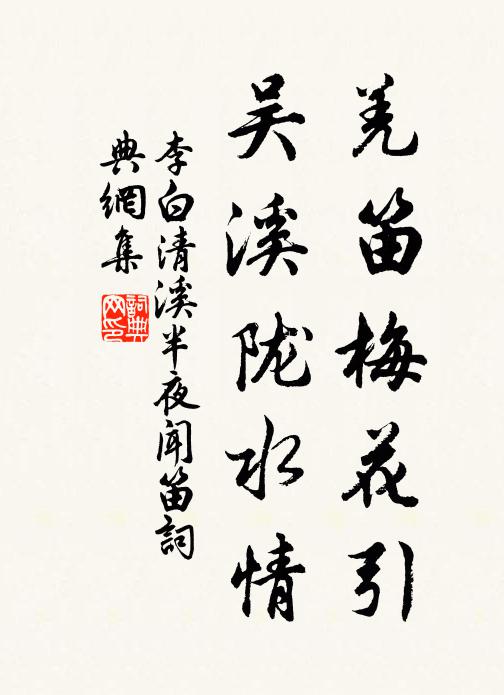 羌笛梅花引
吴溪陇水情
李白清溪半夜闻笛詞
典網集
詞典網印